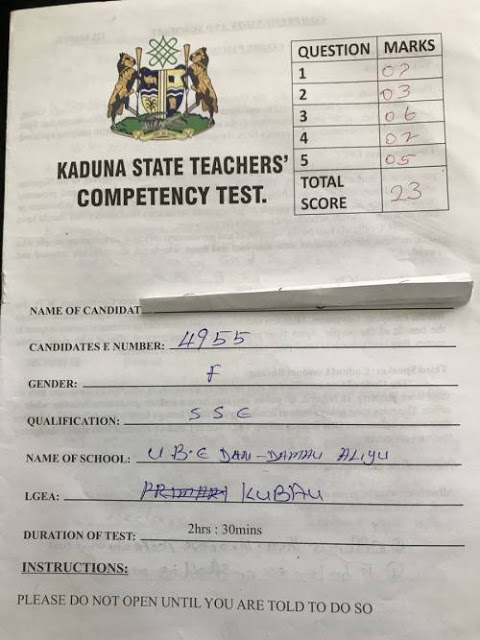 KADUNA STATE TEACHERS'
COMPETENCY TEST.
QUESTION MARKS
1 07
2 03
3 06
4 02
5 05
TOTAL SCORE 23
NAME OF CANDIDAT
CANDIDATES E NUMBER: 4955
GENDER: F
QUALIFICATION: S S C E
NAME OF SCHOOL: U.B.E DAN-DAMAU ALIYU
LGEA: KUBAU
DURATION OF TEST: 2hrs : 30mins
INSTRUCTIONS:
PLEASE DO NOT OPEN UNTIL YOU ARE TOLD TO DO SO